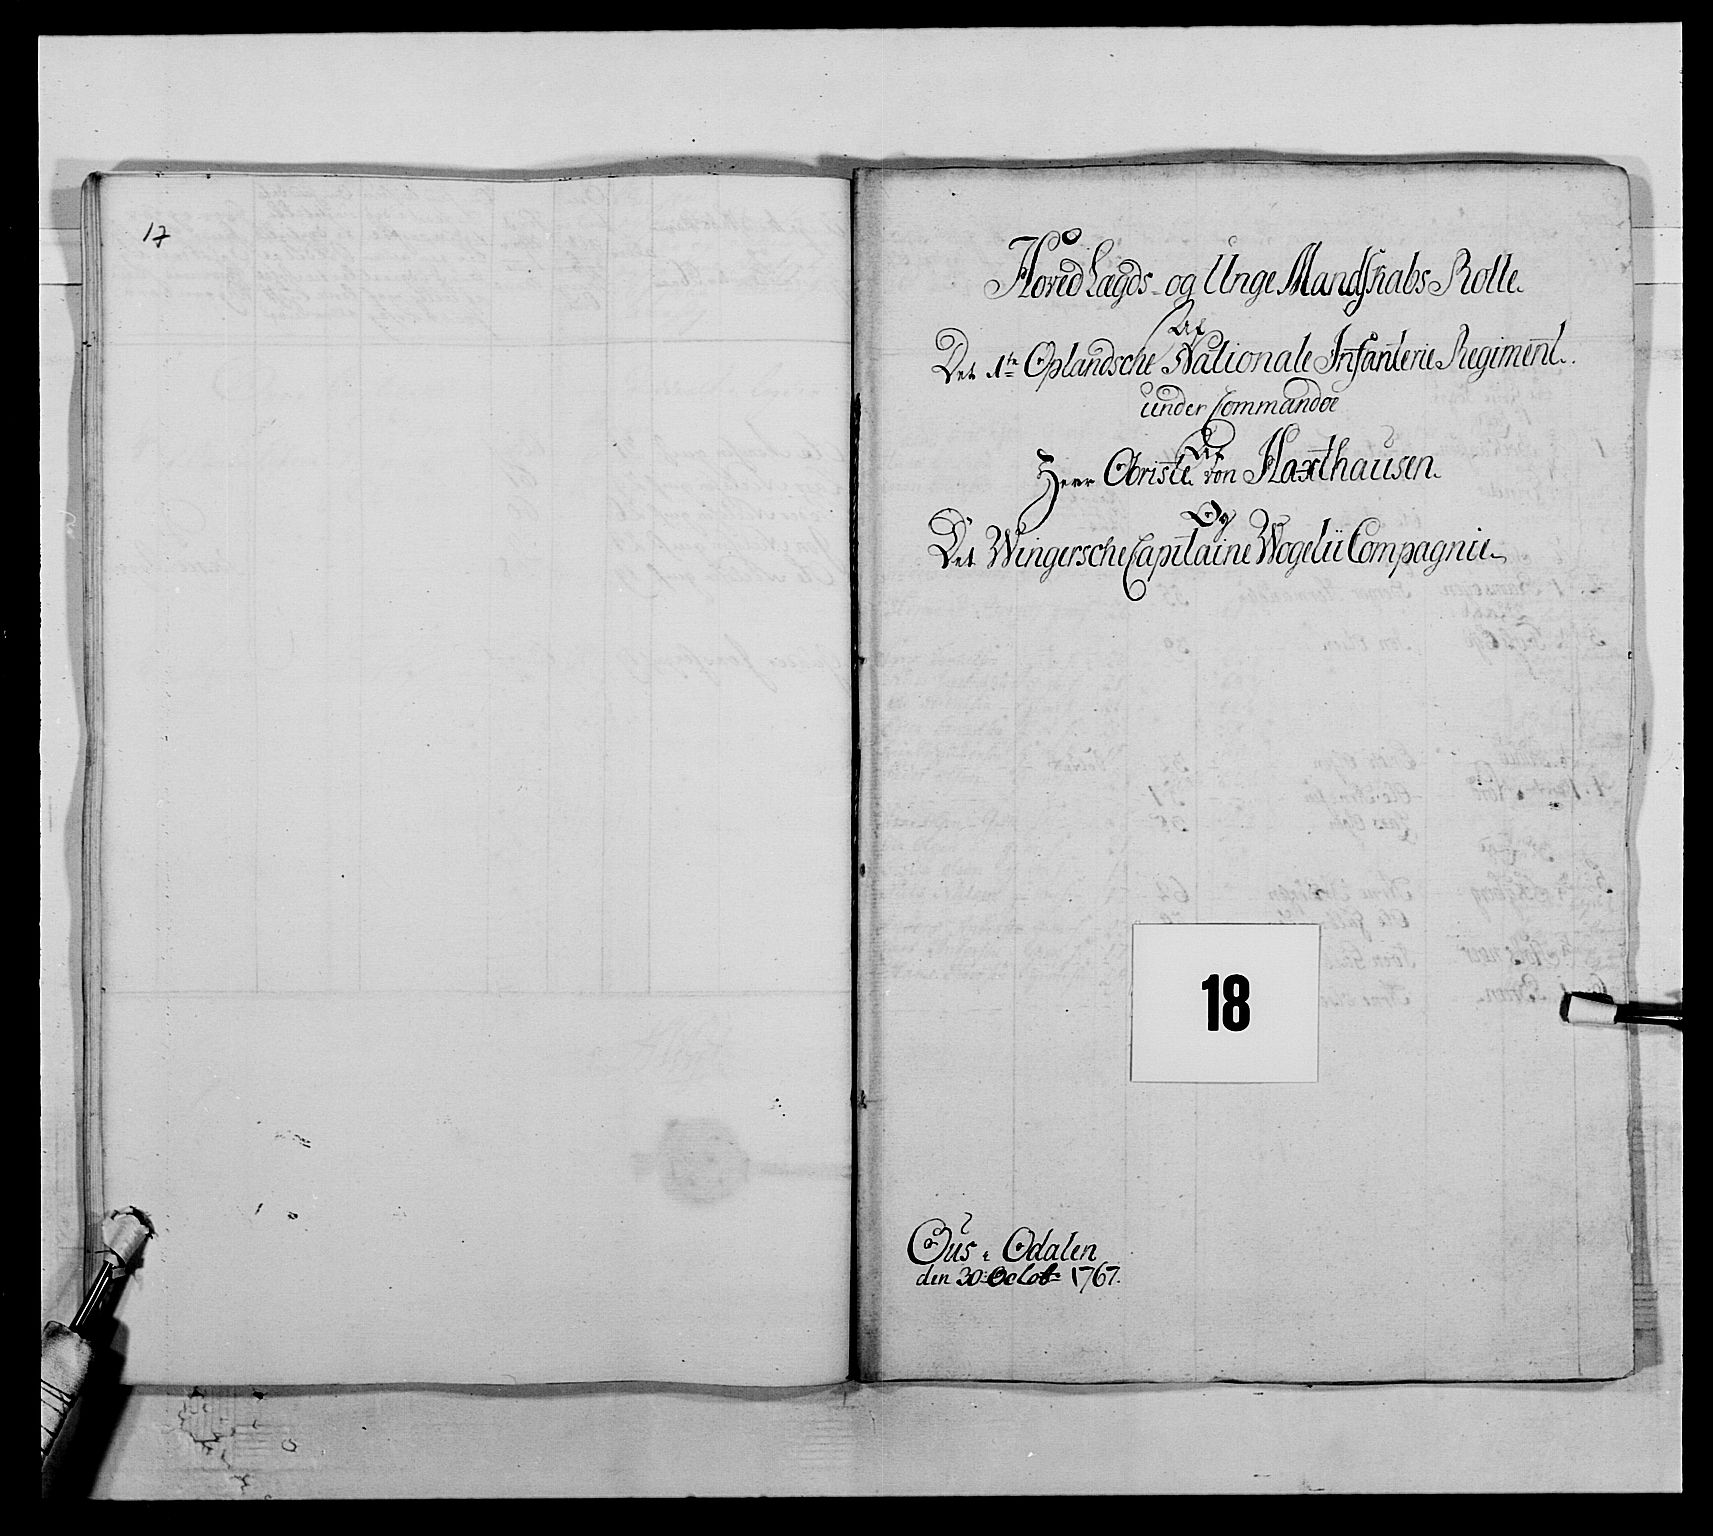 17
Hoved Lægds- og Unge Mandskabs Rolle.
Af
Det 1te Oplandsche Nationale Infanterie Regiment.
under Commandoe
Af
Herr Obriste von Haxthausen.
Og
Det Wingersche Capitaine Wogelii Compagnie.
18
Ous i Odalen
den 30: Octob: 1767.